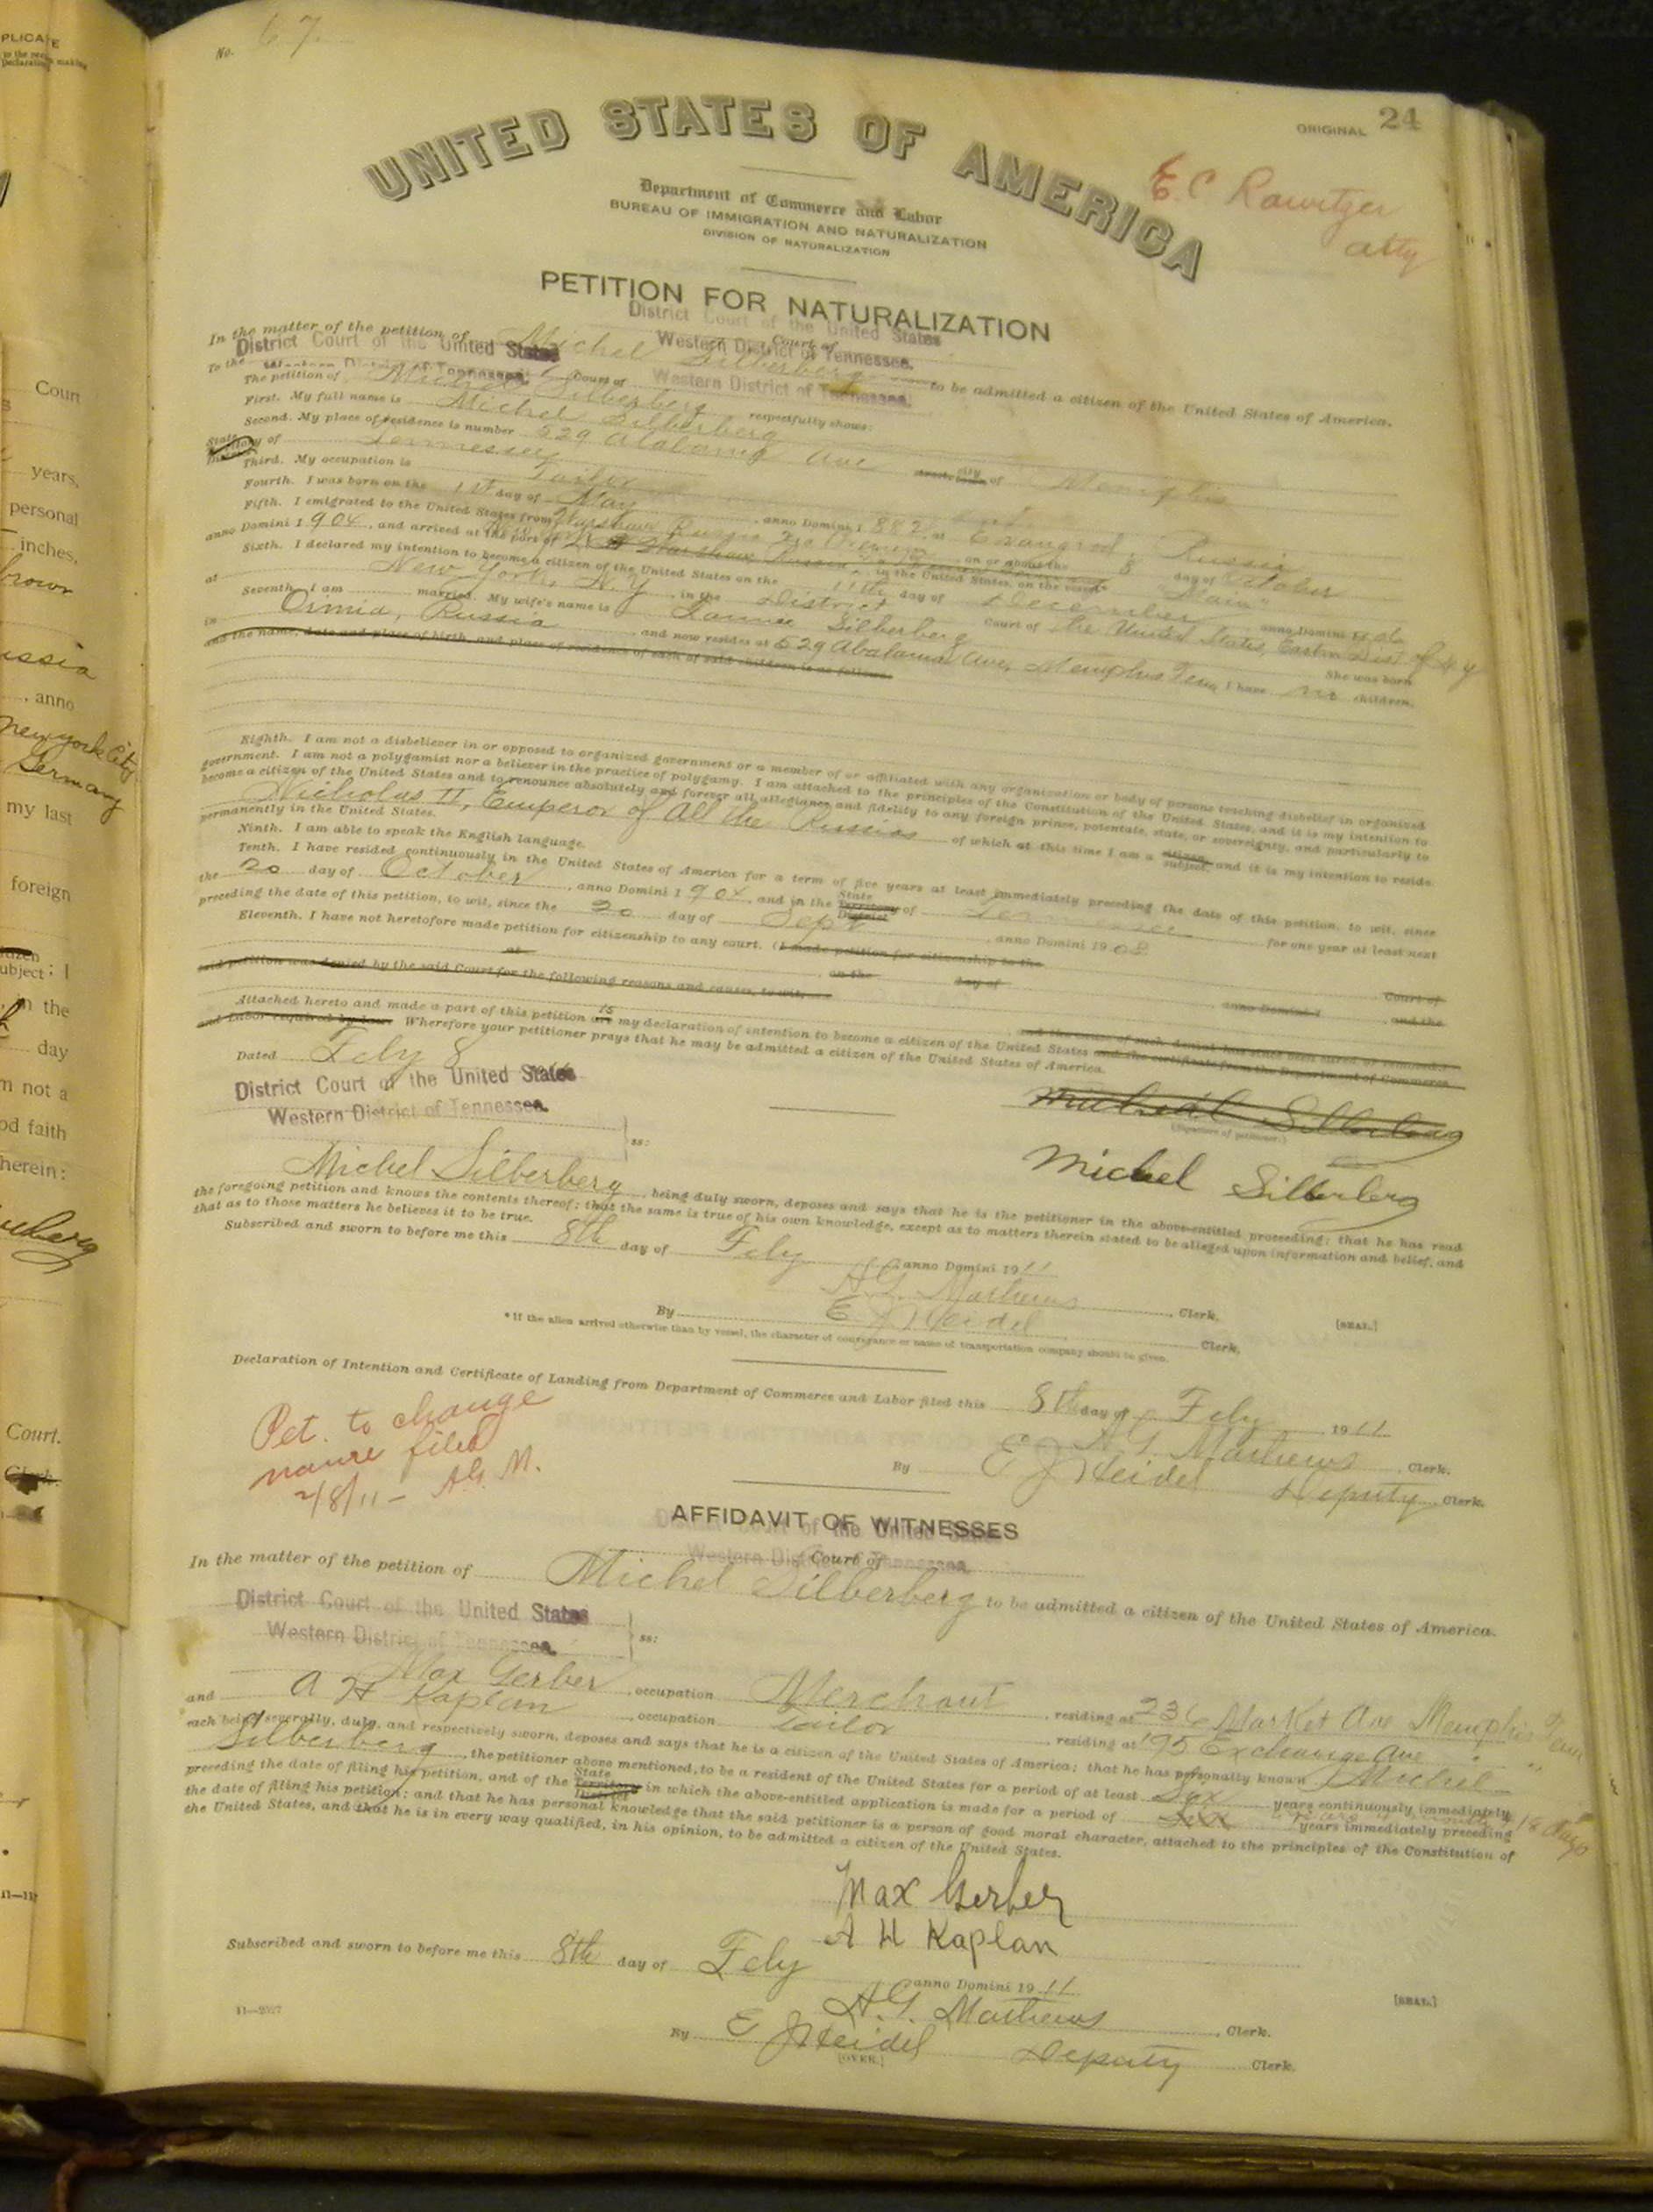 PLICATE
No. 67.
ORIGINAL 24
UNITED STATES OF AMERICA
E.C Rawitzer
atty
Department of Commerce and Labor
BUREAU OF IMMIGRATION AND NATURALIZATION
DIVISION OF NATURALIZATION
PETITION FOR NATURALIZATION
District Court of the United States
Court of Western District of Tennessee.
In the matter of the petition of Michel Silberberg to be admitted a citizen of the United States of America.
To the District Court of the United States Western District of Tennessee. Court of Western District of Tennessee.
The petition of Michel Silberberg respectfully shows:
First. My full name is Michel Silberberg
Second. My place of residence is number 529 Alabama Ave city of Memphis
State of Tennessee
Third. My occupation is Tailor
Fourth. I was born on the 1st day of May, anno Domini 1 882, at Russia
Fifth. I emigrated to the United States from Warshaw Russia via on or about the 8 day of October
anno Domini 1 904, and arrived at the port of New York in the United States, on the vessel "Main"
Sixth. I declared my intention to become a citizen of the United States on the 11th day of December, anno Domini
at New York, N.Y, in the District Court of the United States, Eastern Dist of N Y
Seventh. I am married. My wife's name is Silberberg She was born
in Russia and now resides at 529 Alabama Ave, Memphis Tenn I have no children,
and the name, date and place of birth, and place of residence of each of said children is as follows:
Eighth. I am not a disbeliever in or opposed to organized government or a member of or affiliated with any organization or body of persons teaching disbelief in organized
government. I am not a polygamist nor a believer in the practice of polygamy. I am attached to the principles of the Constitution of the United States, and it is my intention to
become a citizen of the United States and to renounce absolutely and forever all allegiance and fidelity to any foreign prince, potentate, state, or sovereignty, and particularly to
Nicholas II, Emperor of all the Russias of which at this time I am a citizen subject, and it is my intention to reside
permanently in the United States.
Ninth. I am able to speak the English language.
Tenth. I have resided continuously in the United States of America for a term of five years at least immediately preceding the date of this petition, to wit, since
the 20 day of October, anno Domini 1 904, and in the State Territory District of Tennessee for one year at least next
preceding the date of this petition, to wit, since the 20 day of Sept, anno Domini 1908
Eleventh. I have not heretofore made petition for citizenship to any court. (I made petition for citizenship to the Court of
at, on the day of anno Domini 1 and the
said petition was denied by the said Court for the following reasons and causes, to wit,
and the cause of such denial has since been cured or removed.)
Attached hereto and made a part of this petition are is my declaration of intention to become a citizen of the United States and the certificate from the Department of Commerce
and Labor required by law. Wherefore your petitioner prays that he may be admitted a citizen of the United States of America.
Dated Feby 8
Michel Silberberg
(Signature of petitioner.)
District Court of the United States
Western District of Tennessee. ss:
Michel Silberberg
Michel Silberberg, being duly sworn, deposes and says that he is the petitioner in the above-entitled proceeding; that he has read
the foregoing petition and knows the contents thereof; that the same is true of his own knowledge, except as to matters therein stated to be alleged upon information and belief, and
that as to those matters he believes it to be true.
Subscribed and sworn to before me this 8th day of Feby, anno Domini 1911
A.G. Mathews, Clerk. [SEAL.]
By E J Heidel Clerk.
*If the alien arrived otherwise than by vessel, the character of conveyance or name of transportation company should be given.
Declaration of Intention and Certificate of Landing from Department of Commerce and Labor filed this 8th day of Feby 1911
A G Mathews, Clerk.
By E J Heidel Deputy Clerk.
Pet. to change
name filed
2/8/11 - A.G. M.
AFFIDAVIT OF WITNESSES
District Court of the United States
Court of Western District of Tennessee.
In the matter of the petition of Michel Silberberg to be admitted a citizen of the United States of America.
District Court of the United States
Western District of Tennessee. ss:
Max Gerber, occupation Merchant, residing at 236 Market Ave Memphis Tenn
and A H Kaplan, occupation Tailor, residing at 195 Exchange Ave " "
each being severally, duly, and respectively sworn, deposes and says that he is a citizen of the United States of America; that he has personally known Michel
Silberberg, the petitioner above mentioned, to be a resident of the United States for a period of at least Six years continuously immediately
preceding the date of filing his petition, and of the State Territory District in which the above-entitled application is made for a period of years immediately preceding 18 days
the date of filing his petition; and that he has personal knowledge that the said petitioner is a person of good moral character, attached to the principles of the Constitution of
the United States, and that he is in every way qualified, in his opinion, to be admitted a citizen of the United States.
Max Gerber
A H Kaplan
Subscribed and sworn to before me this 8th day of Feby anno Domini 1911
A.G. Mathews, Clerk. [SEAL.]
By E J Heidel Deputy Clerk.
11—2527
[OVER.]
Court
years,
personal
inches,
brown
ussia
, anno
New York City
Germany
my last
foreign
subject; I
, in the
day
m not a
od faith
herein:
Court.
Clerk.